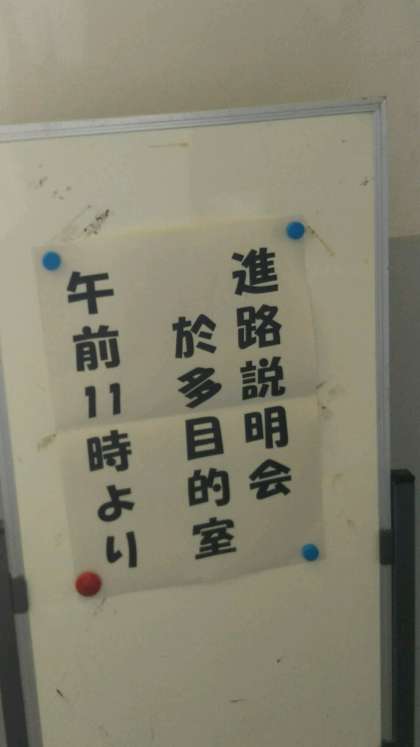 進路説明会
於多目的室
午前11時より